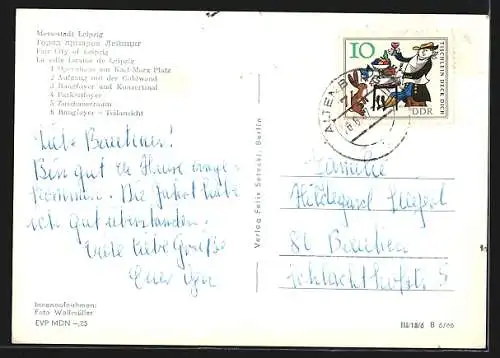 Messestadt Leipzig
Город ярмарок Лейпциг
Fair City of Leipzig
La ville foraine de Leipzig
1 Opernhaus am Karl-Marx-Platz
2 Aufgang mit der Goldwand
3 Rangfoyer und Konzertsaal
4 Parkettfoyer
5 Zuschauerraum
6 Rangfoyer - Teilansicht
Liebe Bautzner!
Bin gut zu Hause ange-
kommen. Die Fahrt habe
ich gut überstanden.
Viele liebe Grüße
Euer
Innenaufnahmen:
Foto Wallmüller
EVP MDN -,25
Verlag Felix Setecki, Berlin
10
TISCHLEIN DECK DICH
DDR
ALTENBURG
Familie
Hildegard
86 Bautzen
Schlachthofstr. 5
III/18/6 B 6/66